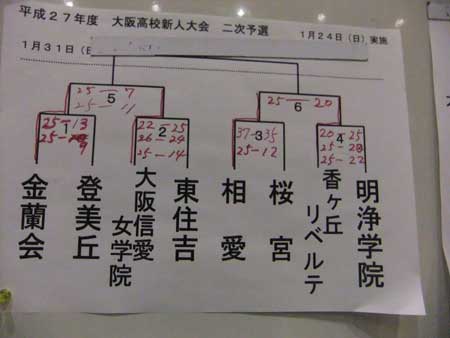 平成27年度 大阪高校新人大会 二次予選 1月24日(日)実施
1月31日(日)
5
25 — 7
25 — 11
6
25 — 20
1
25 — 13
25 — 9
2
22 — 25
26 — 24
25 — 14
3
37 — 35
25 — 12
4
20 — 25
25 — 23
25 — 22
金蘭会
登美丘
大阪信愛女学院
東住吉
相愛
桜宮
香ヶ丘リベルテ
明浄学院